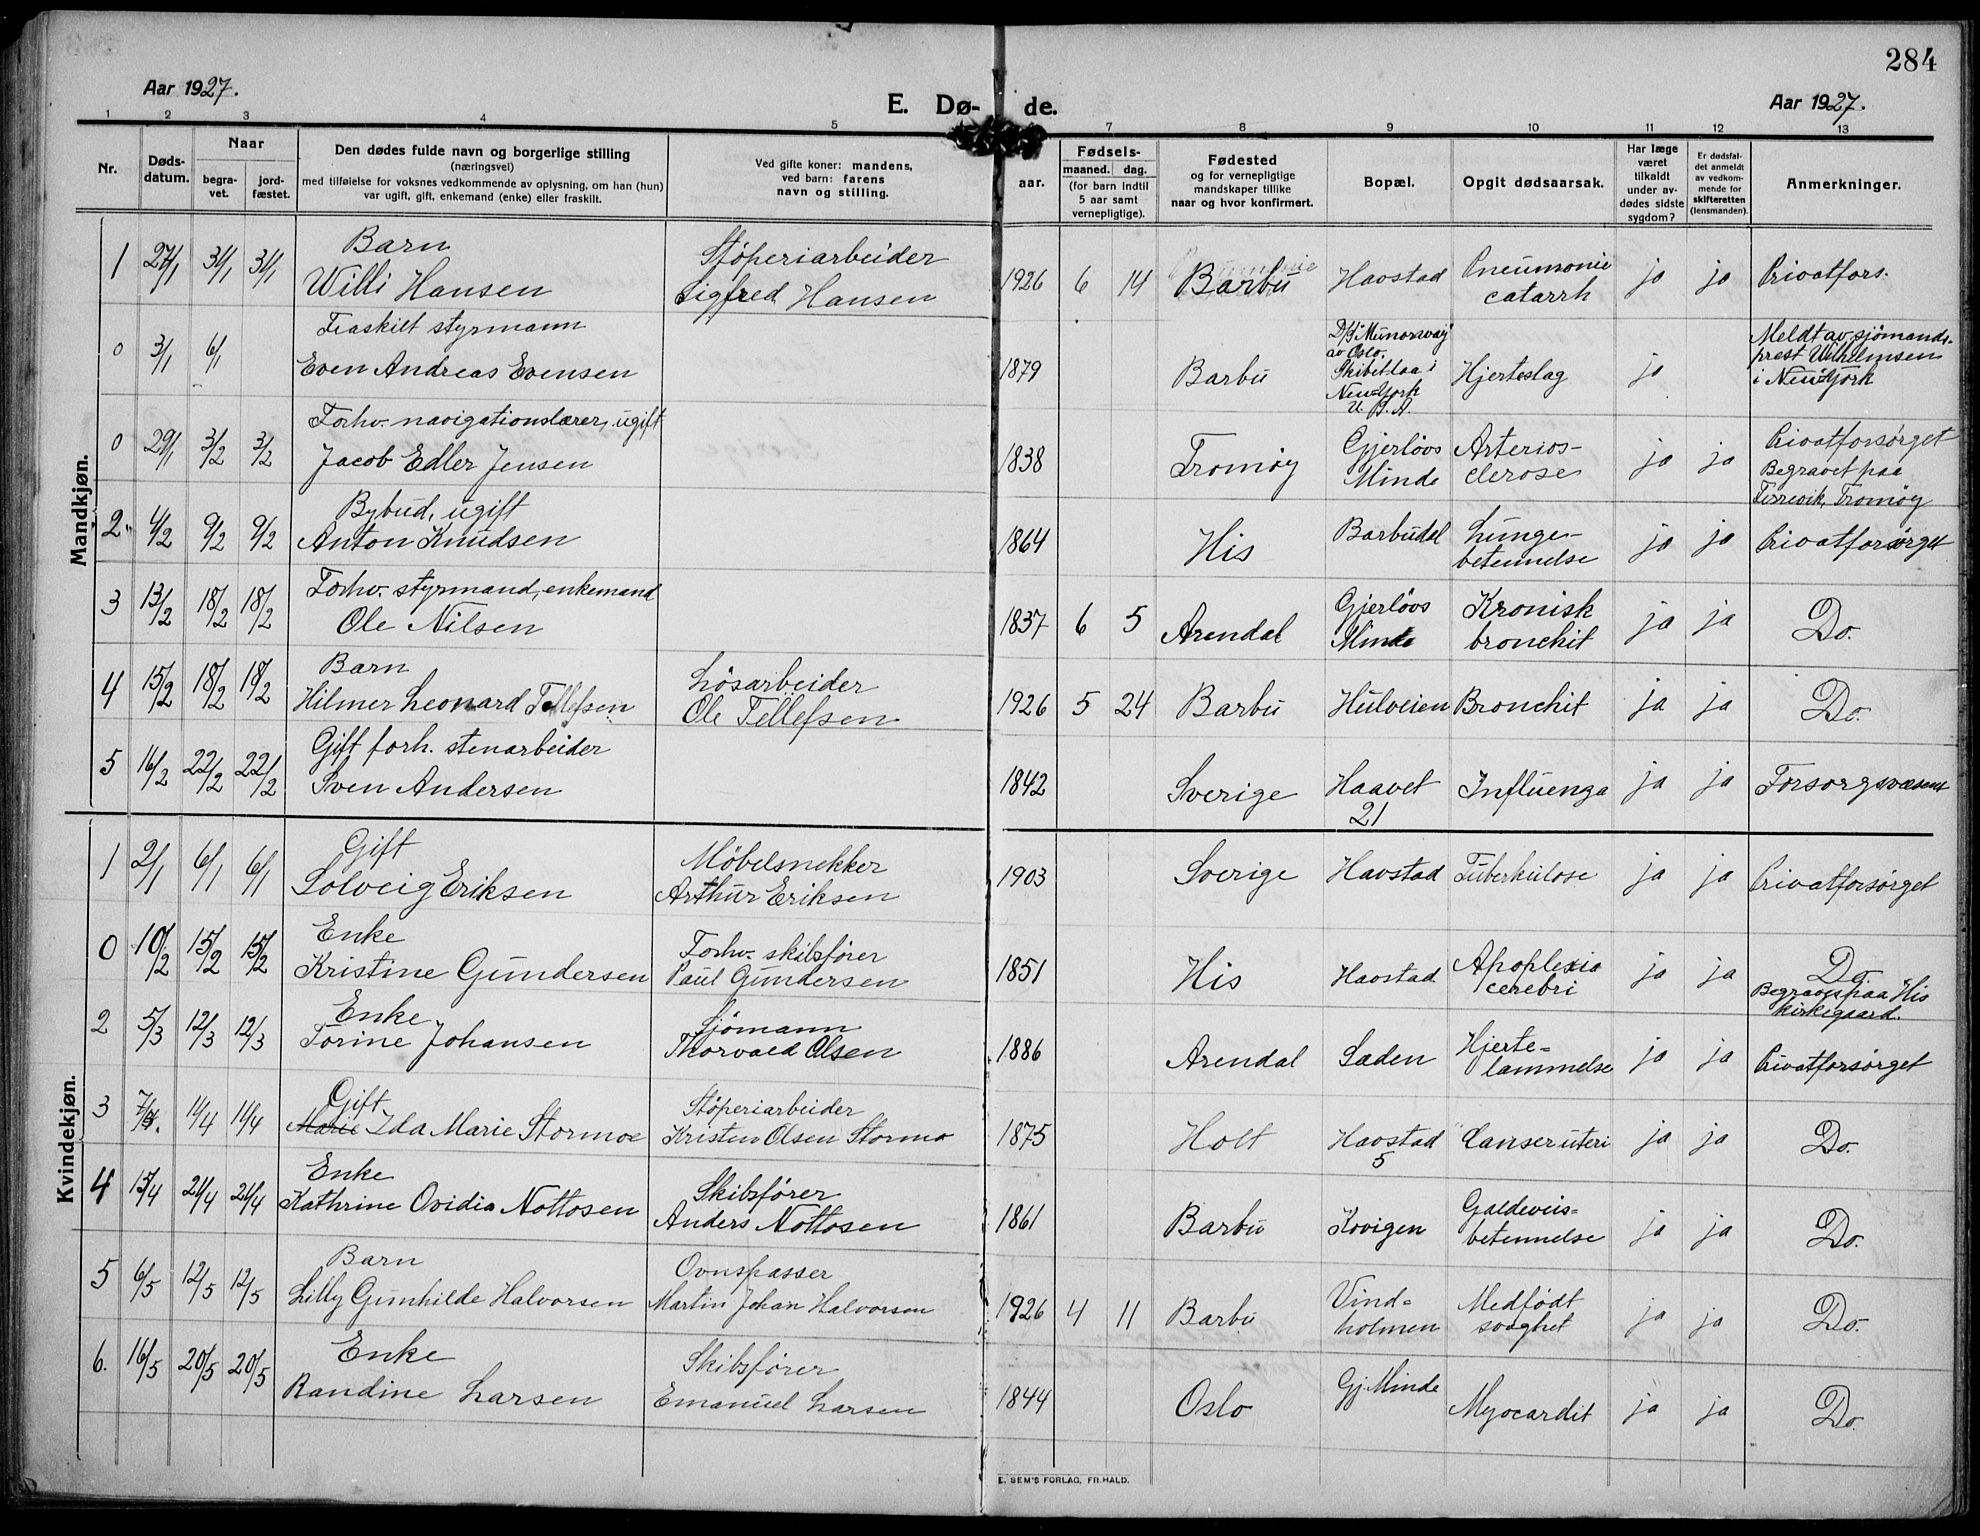 284
Aar 1927.
E. Dø- de.
Aar 1927.
1 2 3 4 5 7 8 9 10 11 12 13
Nr.
Døds-
datum.
Naar
begra-
vet.
jord-
fæstet.
Den dødes fulde navn og borgerlige stilling
(næringsvei)
med tilføielse for voksnes vedkommende av oplysning, om han (hun)
var ugift, gift, enkemand (enke) eller fraskilt.
Ved gifte koner: mandens,
ved barn: farens
navn og stilling.
aar.
Fødsels-
maaned. dag.
(for barn indtil
5 aar samt
vernepligtige).
Fødested
og for vernepligtige
mandskaper tillike
naar og hvor konfirmert.
Bopæl.
Opgit dødsaarsak.
Har læge
været
tilkaldt
under av-
dødes sidste
sygdom?
Er dødsfal-
det anmeldt
av vedkom-
mende for
skifteretten
(lensmanden).
Anmerkninger.
Mandkjøn.
1 27/1 31/1 31/1
Barn
Willi Hansen
Støperiarbeider
Sigfred Hansen
1926 6 14 Barbu Havstad
Pneumonie
catarrh
ja ja Privatfors.
0 3/1 6/1
Fraskilt styrmann
Even Andreas Evensen
1879 Barbu
D/S "Munorway"
av Oslo.
Skibet laa i
New-York
U. S. A.
Hjerteslag ja
Meldt av sjömands-
prest Wilhelmsen
i New York
0 29/1 3/2 3/2
Forhv. navigationslærer, ugift
Jacob Edler Jensen
1838 Tromøy
Gjerløvs
Minde
Arterios-
clerose
ja ja
Privatforsørget
Begravet paa
Færevik, Tromøy
2 4/2 9/2 9/2
Bybud, ugift
Anton Knudsen
1864 His Barbudal
Lunge-
betennelse
ja ja Privatforsørget
3 13/2 18/2 18/2
Forhv. styrmand, enkemand
Ole Nilsen
1837 6 5 Arendal
Gjerløvs
Minde
Kronisk
bronchit
ja ja Do.
4 15/2 18/2 18/2
Barn
Hilmer Leonard Tellefsen
Løsarbeider
Ole Tellefsen
1926 5 24 Barbu Hulveien Bronchit ja ja Do.
5 16/2 22/2 22/2
Gift forh. stenarbeider
Sven Andersen
1842 Sverige
Haavet
21
Influenga ja ja Forsorgsvæsent
Kvindekjøn.
1 2/1 6/1 6/1
Gift
Solveig Eriksen
Møbelsnekker
Arthur Eriksen
1903 Sverige Havstad Tuberkulose ja ja Privatforsørget
0 10/2 15/2 15/2
Enke
Kristine Gundersen
Forhv. skibsfører
Paul Gundersen
1851 His Havstad
Apoplexia
cerebri
ja ja
Do.
Begraves paa His
kirkegaard.
2 5/3 12/3 12/3
Enke
Torine Johansen
Sjømann
Thorvald Olsen
1886 Arendal Saden
Hjerte-
lammelse
ja ja Privatforsørget
3 7/4. 11/4 11/4
Gift
Marie Ida Marie Stormoe
Støperiarbeider
Kristen Olsen Stormo
1875 Holt
Havstad
5
Canser uteri ja ja Do.
4 15/4 21/4 21/4
Enke
Kathrine Ovidia Nottosen
Skibsfører
Anders Nottosen
1861 Barbu Kovigen
Galdeveis-
betennelse
ja ja Do.
5 6/5 12/5 12/5
Barn
Lilly Gunhilde Halvorsen
Ovnspasser
Martin Johan Halvorsen
1926 4 11 Barbu
Vind-
holmen
Medfødt
svaghet
ja ja Do.
6. 16/5 20/5 20/5
Enke
Randine Larsen
Skibsfører
Emanuel Larsen
1844 Oslo Gj. Minde Myocardit ja ja Do.
E. SEM'S FORLAG, FR.HALD.